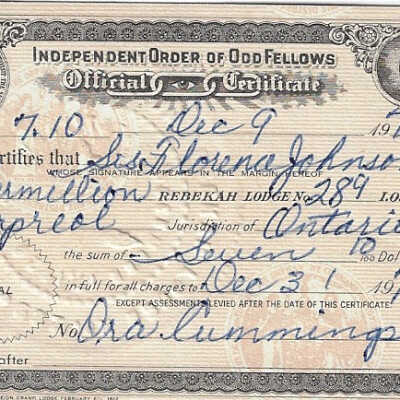 INDEPENDENT ORDER OF ODD FELLOWS
Official Certificate
7.10 Dec 9 19
rtifies that Sis. Florence Johnson
WHOSE SIGNATURE APPEARS IN THE MARGIN HEREOF
ermillion REBEKAH LODGE No 289 LO
preol Jurisdiction of Ontario
the sum of Seven 10/100 Dol
AL in full for all charges to Dec 31 19
EXCEPT ASSESSMENT LEVIED AFTER THE DATE OF THIS CERTIFICATE
No Ora Cummings
after
EIGN GRAND LODGE FEBRUARY